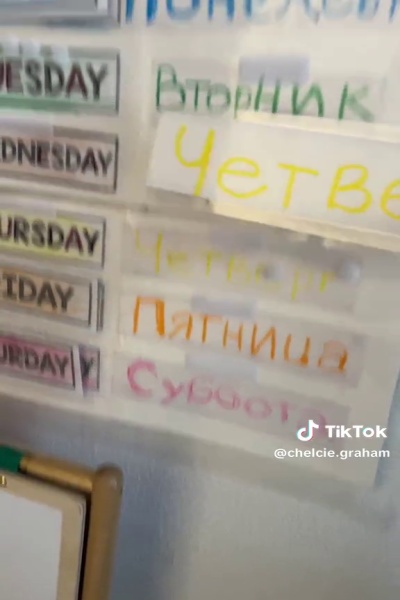 ПОНЕДЕЛЬ
UESDAY Вторник
DNESDAY Четве
URSDAY Четверг
IDAY Пятница
URDAY Y Суббота
TikTok
@chelcie.graham